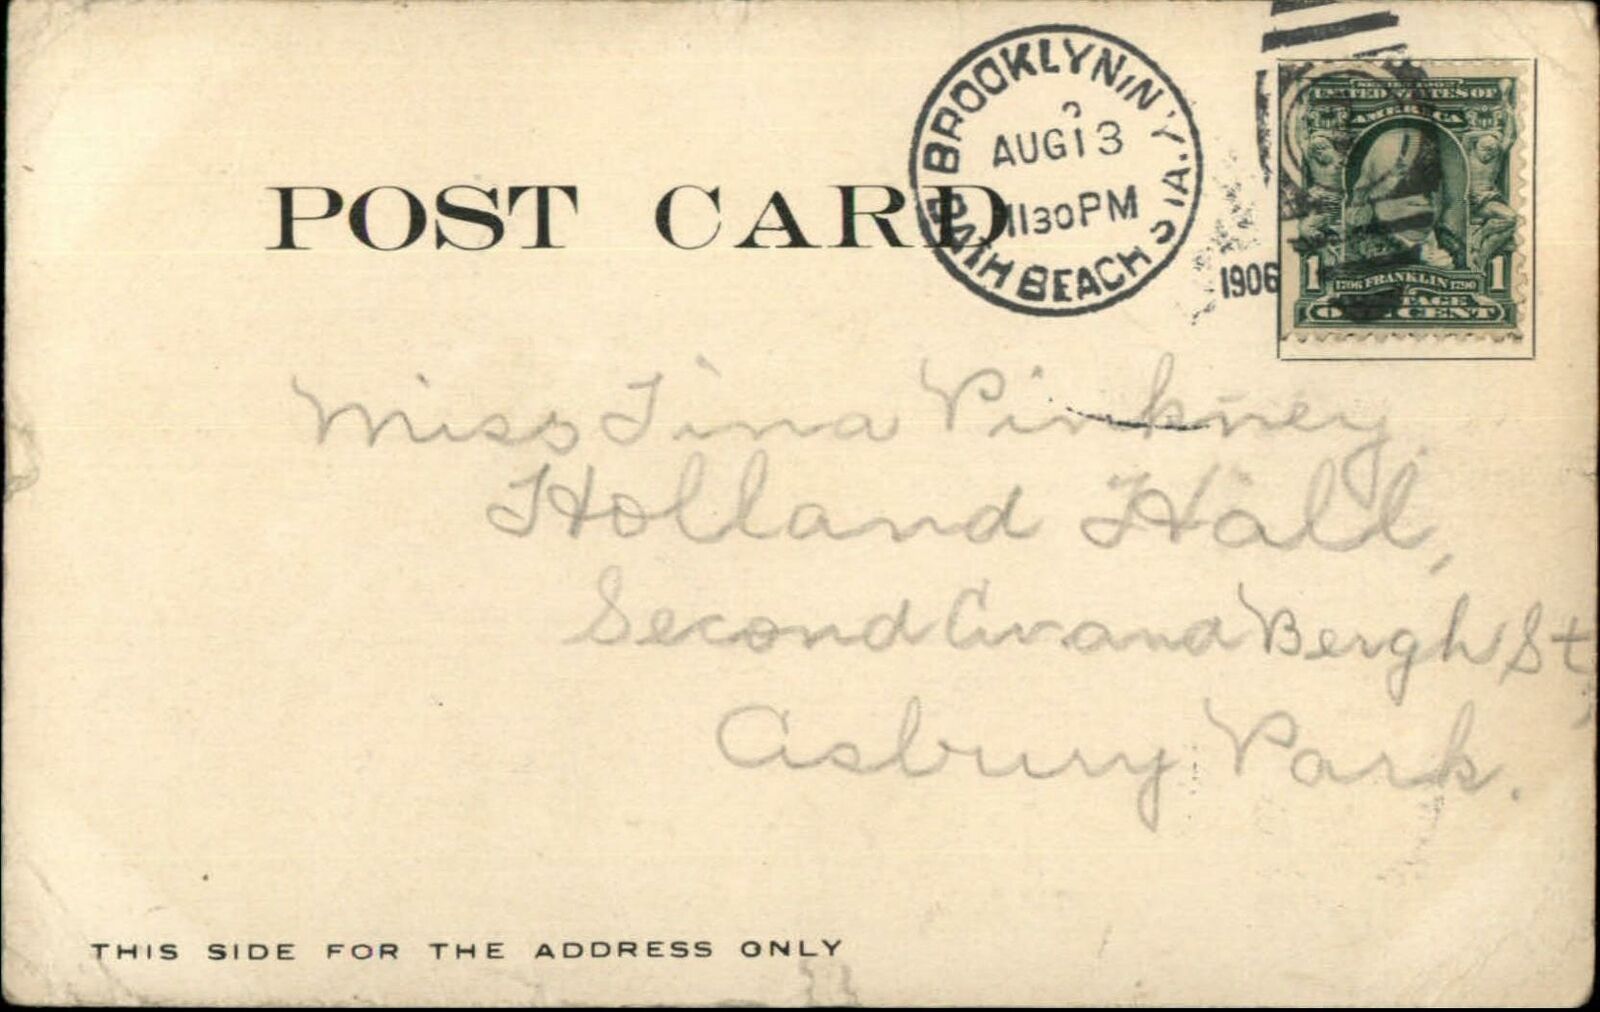 BROOKLYN, N.Y.
AUG 13
11 30 PM
BATH BEACH STA.
1906
SERIES 1902
UNITED STATES OF
AMERICA
1 1706 FRANKLIN 1790 1
POSTAGE
ONE CENT
POST CARD
Miss Tina Pinkney
Holland Hall,
Second Av. and Bergh St,
Asbury Park.
THIS SIDE FOR THE ADDRESS ONLY